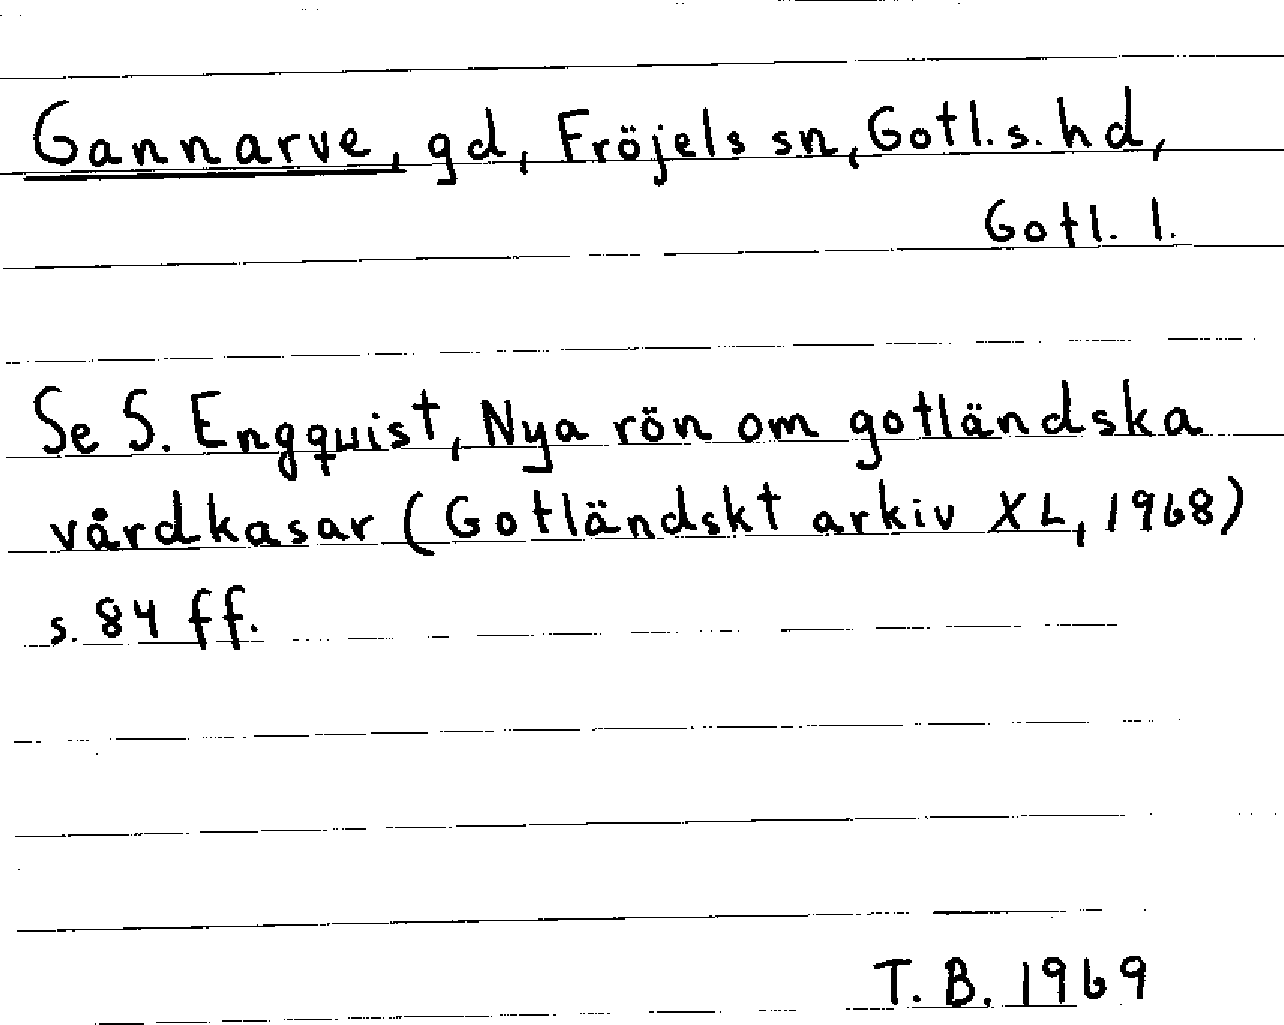 Gannarve, gd, Fröjels sn, Gotl. s. hd,
Gotl. l.
Se S. Engquist, Nya rön om gotländska
vårdkasar (Gotländskt arkiv XL, 1968)
s. 84 ff.
T. B. 1969